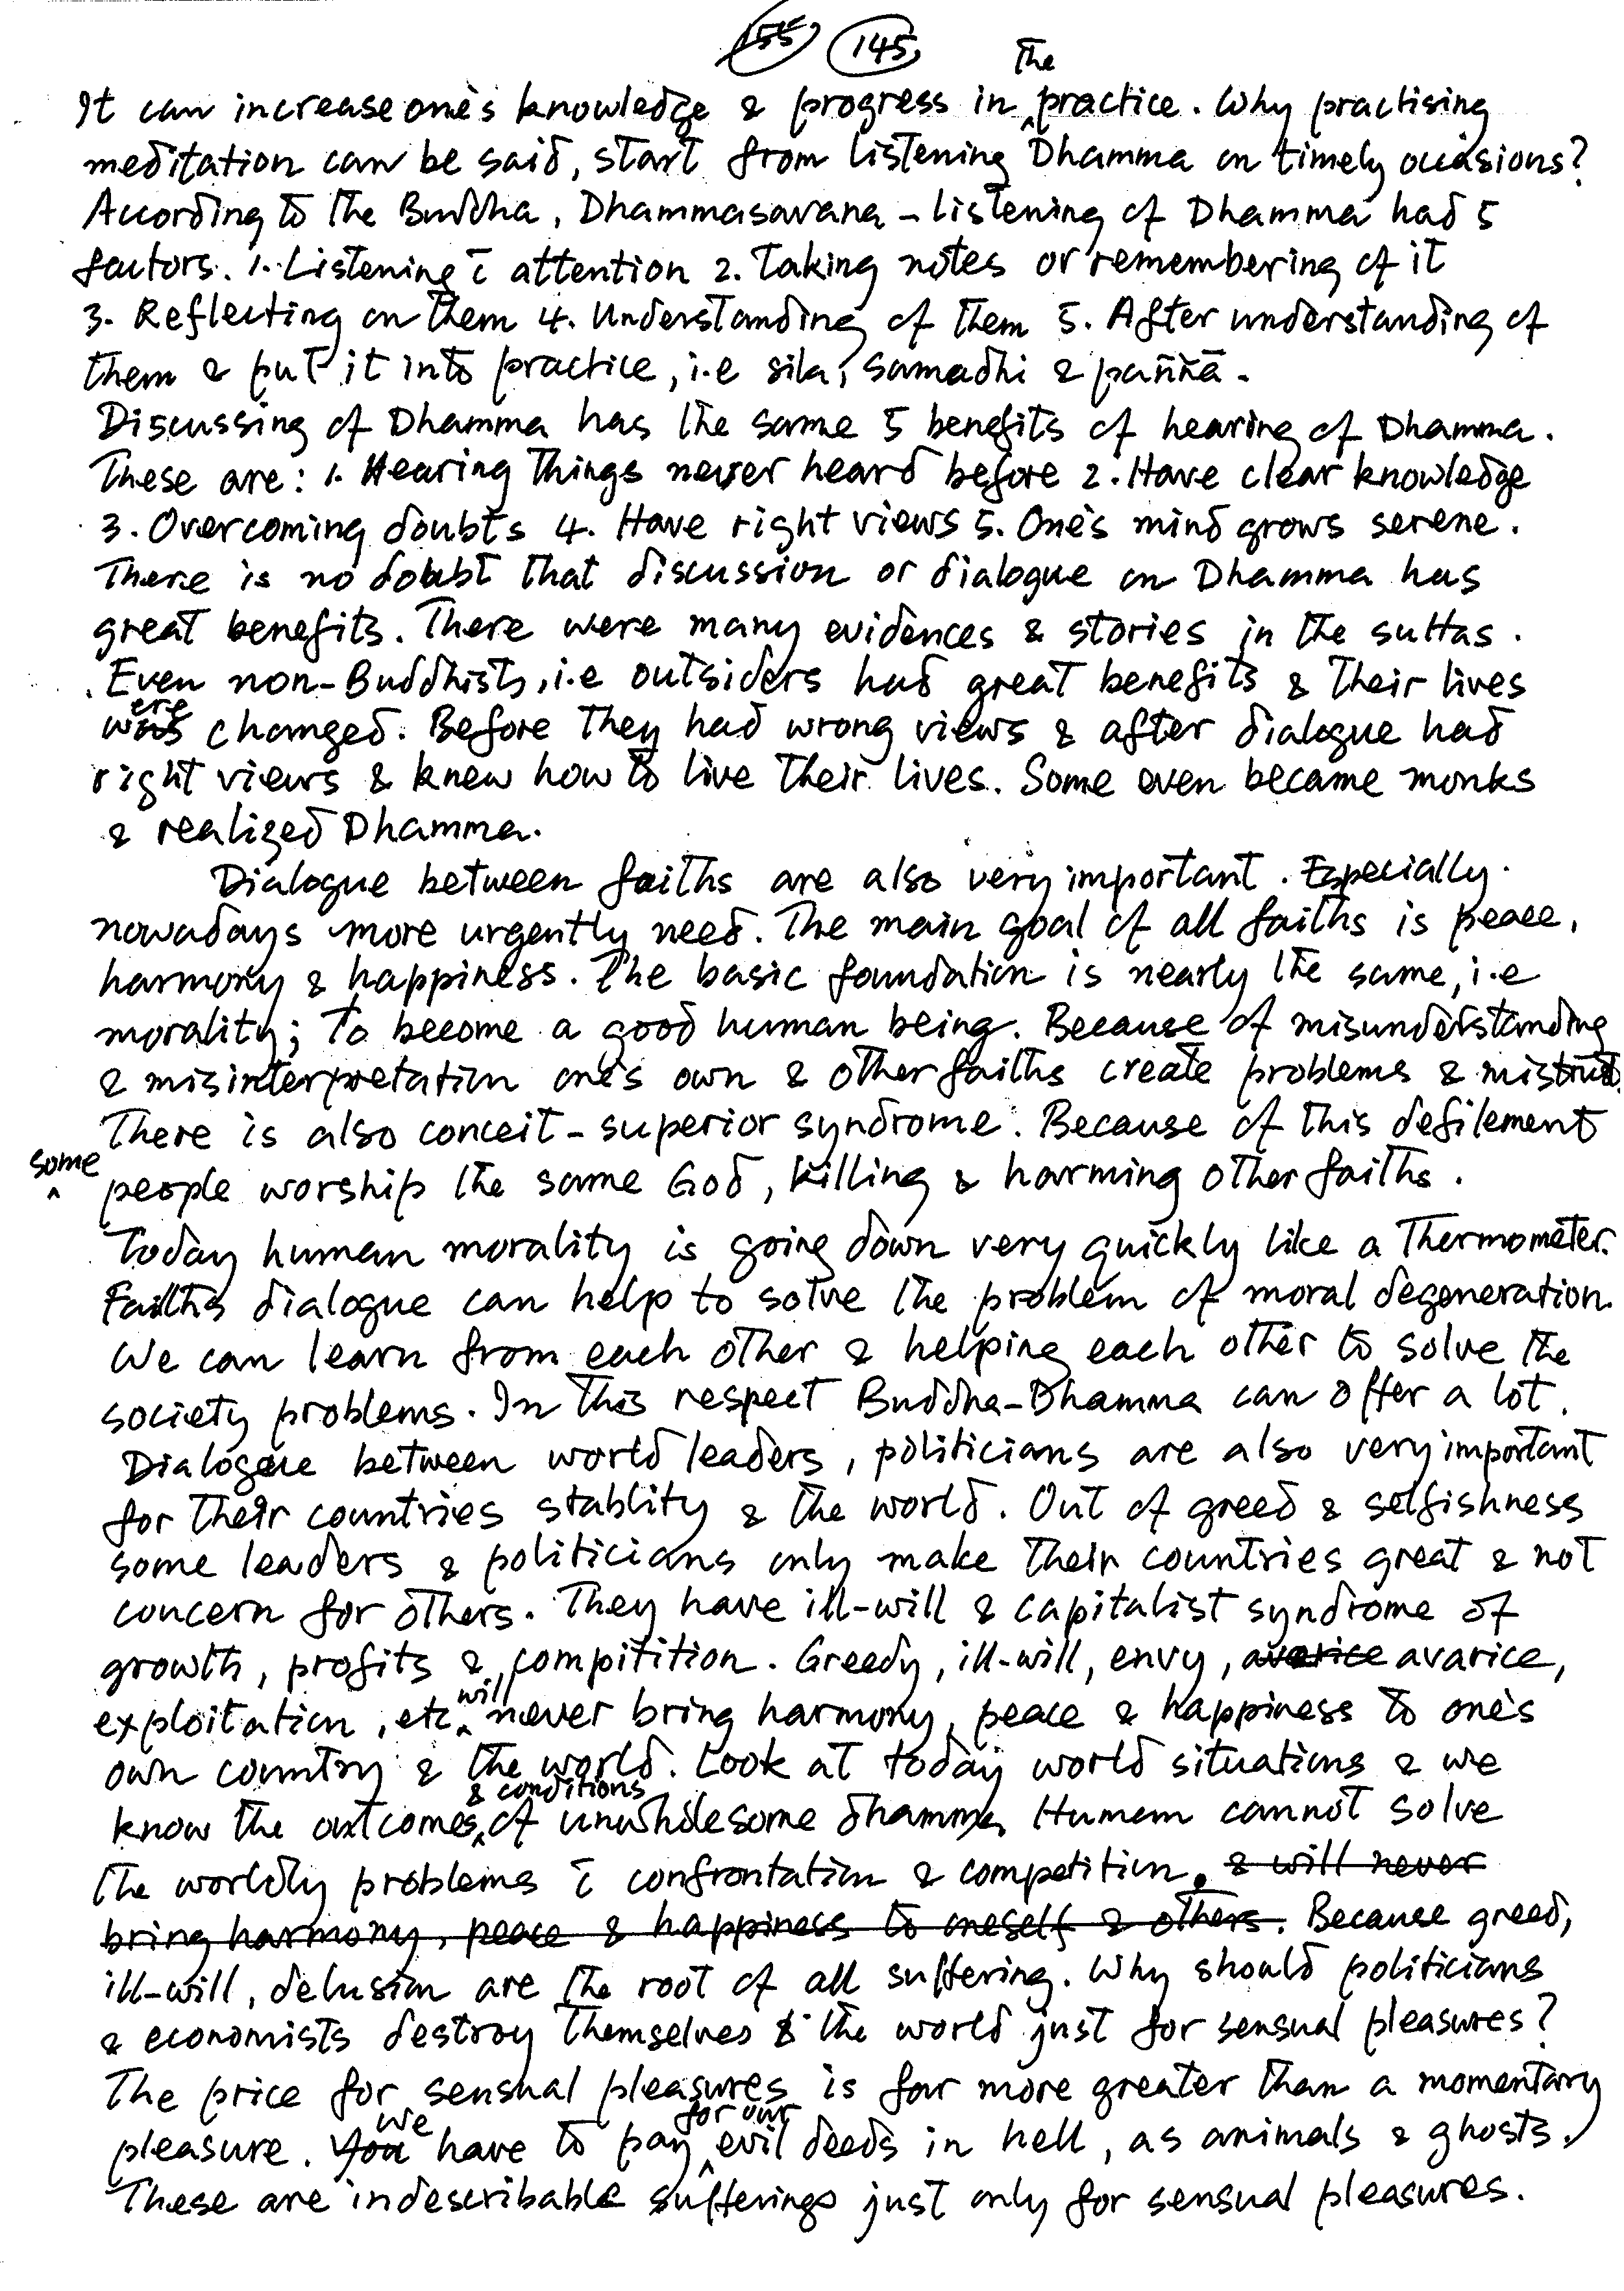 155 145
The
It can increase one's knowledge & progress in ^ practice. Why practising
meditation can be said, start from listening Dhamma on timely occasions?
According to the Buddha, Dhammasavana - listening of Dhamma had 5
factors. 1. Listening c̄ attention 2. Taking notes or remembering of it
3. Reflecting on them 4. Understanding of them 5. After understanding of
them & put it into practice, i.e sila, samadhi & paññā.
Discussing of Dhamma has the same 5 benefits of hearing of Dhamma.
These are: 1. Hearing things never heard before 2. Have clear knowledge
3. Overcoming doubts 4. Have right views 5. One's mind grows serene.
There is no doubt that discussion or dialogue on Dhamma has
great benefits. There were many evidences & stories in the suttas.
Even non-Buddhists, i.e outsiders had great benefits & their lives
were changed. Before they had wrong views & after dialogue had
right views & knew how to live their lives. Some even became monks
& realized Dhamma.
Dialogue between faiths are also very important. Especially
nowadays more urgently need. The main goal of all faiths is peace,
harmony & happiness. The basic foundation is nearly the same, i.e
morality; To become a good human being. Because of misunderstanding
& misinterpretation one's own & other faiths create problems & mistrust.
There is also conceit - superior syndrome. Because of this defilement
some ^ people worship the same God, killing & harming other faiths.
Today human morality is going down very quickly like a Thermometer.
Faiths dialogue can help to solve the problem of moral degeneration.
We can learn from each other & helping each other to solve the
society problems. In this respect Buddha-Dhamma can offer a lot.
Dialogue between world leaders, politicians are also very important
for their countries stablity & the world. Out of greed & selfishness
some leaders & politicians only make their countries great & not
concern for others. They have ill-will & capitalist syndrome of
growth, profits & compitition. Greedy, ill-will, envy, avarice avarice,
exploitation, etc. ^ will never bring harmony, peace & happiness to one's
own country & the world. Look at today world situations & we
know the outcomes ^ & conditions of unwholesome dhamma. Humem cannot solve
the worldly problems c̄ confrontation & competition. & will never
bring harmony, peace & happiness to oneself & others. Because greed,
ill-will, delusion are the root of all suffering. Why should politicians
& economists destroy themselves & the world just for sensual pleasures?
The price for sensual pleasures is far more greater than a momentary
pleasure. You we have to pay ^ for our evil deeds in hell, as animals & ghosts.
These are indescribable sufferings just only for sensual pleasures.